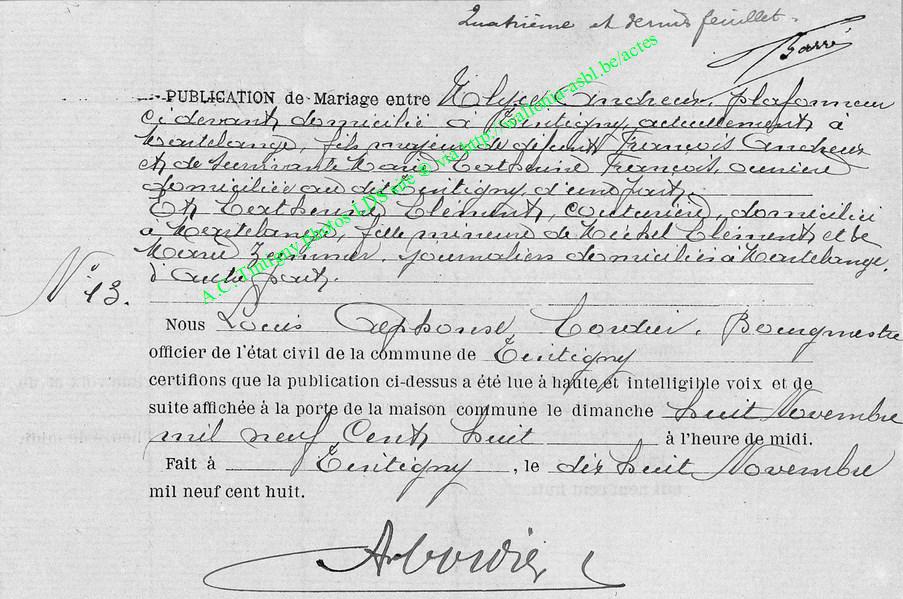 Quatrième et dernier feuillet.
Barré
PUBLICATION de Mariage entre Ulysse Ancheux, plafonneur
ci devant domicilié à Tintigny, actuellement à
Martelange, fils majeur de défunt François Ancheux
et de survivante Marie Catherine François, ouvrière
domiciliée au dit Tintigny, d'une part.
Et Catherine Clément, couturière, domiciliée
à Martelange, fille mineure de Michel Clément et de
Marie Zimmer, journaliers domiciliés à Martelange,
d'autre part.
N° 13.
Nous Louis Alphonse Cordier, Bourgmestre
officier de l'état civil de la commune de Tintigny
certifions que la publication ci-dessus a été lue à haute et intelligible voix et de
suite affichée à la porte de la maison commune le dimanche huit Novembre
mil neuf cent huit à l'heure de midi.
Fait à Tintigny, le dix huit Novembre
mil neuf cent huit.
ACordier
A.C. Tintigny photos LDS site @ via http://wallonia-asbl.be/actes